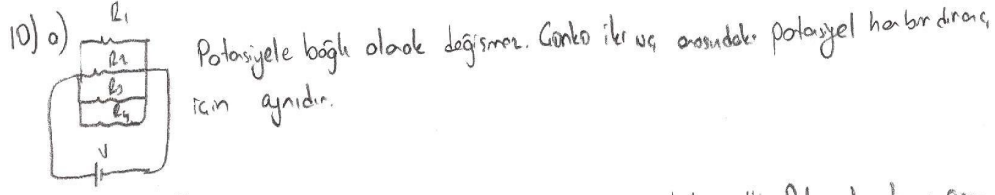 10) a)
R1
R2
R3
R4
V
Potansiyele bağlı olarak değişmez. Çünkü iki uç arasındaki potansiyel her bir direnç
için aynıdır.